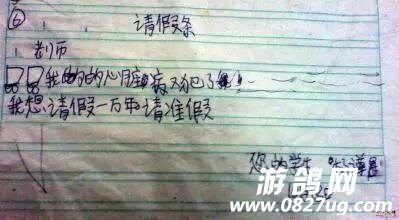 ⑥ 请假条
老师
我的的心脏病又犯了
我想请假一万年请准假
您的学生
游鸽网
www.0827ug.com